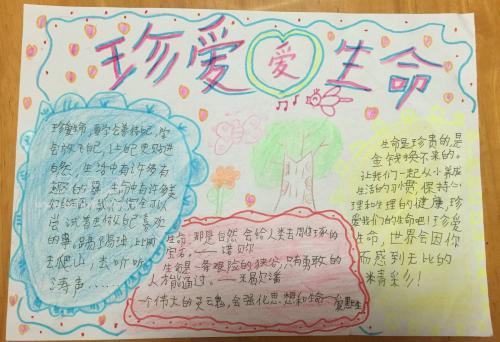 珍爱生命
爱
珍爱生命,要学会善待自己,学
会放飞自己,让自己更贴近
自然,生活中有许多有
趣的事,生命中有许多美
好的东西,我们完全可以
尝试着去做自己喜欢
的事,踢踢毽,上网
去爬山,去听听
涛声……
生命,那是自然会给人类去雕琢的
宝石。——诺贝尔
生命是一条艰险的狭谷,只有勇敢的
人才能通过。——米歇尔潘
一个伟大的灵魂,会强化思想和生命——爱默生
生命是珍贵的,是
金钱换不来的。
让我们一起从小养成
生活的习惯,保持心
理和生理的健康,珍
爱我们的生命吧!珍爱
生命,世界会因你
而感到无比的
精彩!